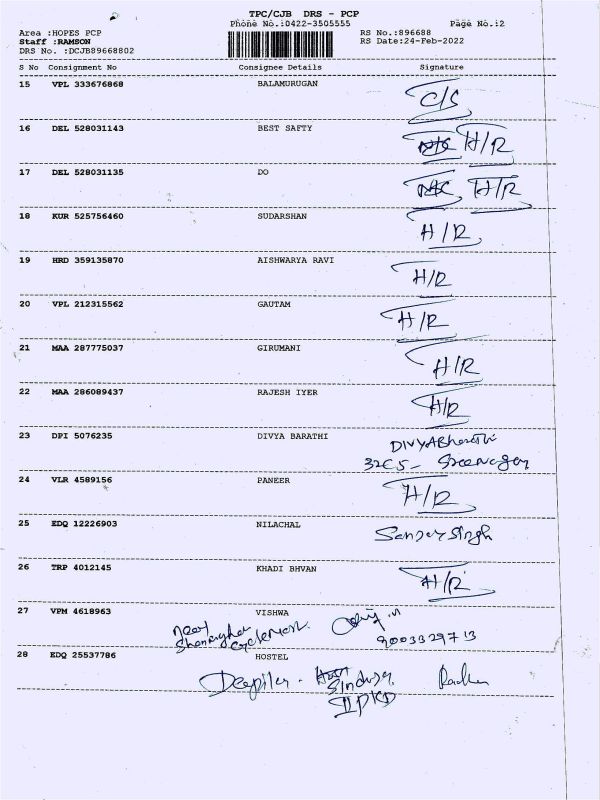 TPC/CJB DRS - PCP
Phone No.:0422-3505555
Page No.:2
Area :HOPES PCP
RS No.:896688
Staff :RAMSON
RS Date:24-Feb-2022
DRS No. :DCJB89668802
S No Consignment No Consignee Details Signature
15 VPL 333676868 BALAMURUGAN C/S
16 DEL 528031143 BEST SAFTY H/R
17 DEL 528031135 DO H/R
18 KUR 525756460 SUDARSHAN H/R
19 HRD 359135870 AISHWARYA RAVI H/R
20 VPL 212315562 GAUTAM H/R
21 MAA 287775037 GIRUMANI H/R
22 MAA 286089437 RAJESH IYER H/R
23 DPI 5076235 DIVYA BARATHI DIVYABharathi
24 VLR 4589156 PANEER H/R
25 EDQ 12226903 NILACHAL Sanjay Singh
26 TRP 4012145 KHADI BHVAN H/R
27 VPM 4618963 VISHWA
near
9003329713
28 EDQ 25537786 HOSTEL